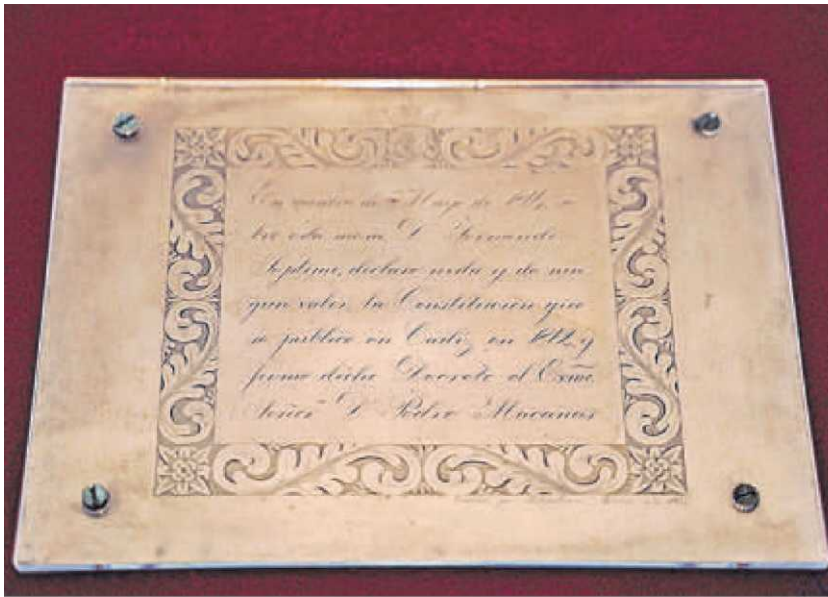 En cuatro de Mayo de 1814, so
bre esta mesa, D. Fernando
Septimo, declaro nula y de nin
gun valor la Constitucion que
se publico en Cadiz en 1812, y
firmo dicho Decreto el Exmo.
Señor D. Pedro Macanas